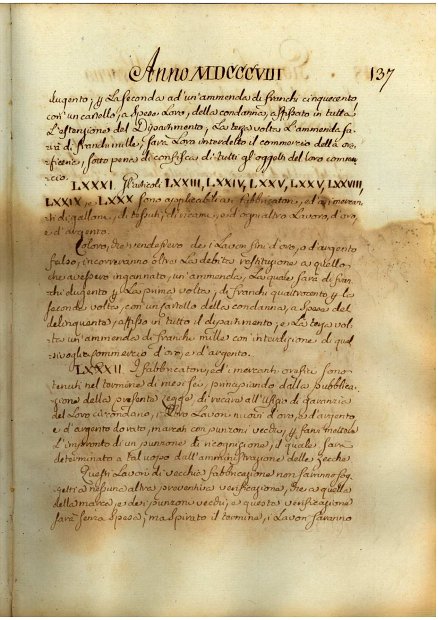 Anno MDCCCVIII 137
dugento; p. La Seconda ad'un'ammenda di franchi cinquecento
con'un cartello, a Spese Loro, della condanna, affissato in tutta
L'estenzione del Dipartimento, La terza volta L'ammenda sa
rà di franchi mille, sarà Loro interdetto il commercio della o
reficeria, sotto pena di confisca di tutti gli oggetti del loro comm
ercio.
LXXXI. Gl'articoli LXXIII, LXXIV, LXXV, LXXV, LXXVIII,
LXXIX, e LXXX sono applicabili ai fabbricatori, ed ai mercan
ti di galloni, di tessuti, di ricami, ed ogni altro Lavoro, d'oro,
e d'argento.
Coloro, che vendessero de i Lavori fini d'oro, o d'argento
falso, incorreranno oltre La debita restituzione a quello,
che avessero ingannato, un'ammenda, La quale sarà di fran
chi dugento p. La prima volta; di franchi quattrocento p. la
seconda volta, con'un cartello della condanna, a Spese del
delinquente, affisso in tutto il dipartimento; e La terza vol
ta un'ammenda di franchi mille con interdizione di qual
sivoglia commercio d'oro, e d'argento.
LXXXII. I fabbricatori, ed i mercanti orefici sono
tenuti nel termine di mesi sei, principiando dalla pubblica
zione della presente legge, di recare all'ufizio di garanzia
del Loro circondario, i Loro Lavori nuovi d'oro, e d'argento,
e d'argento dorato, marcati con punzoni vecchi, p. farvi mettere
l'impronto di un punzone di ricognizione, il quale sarà
determinato a tal uopo dall'amministrazione delle Zecche
Questi Lavori di vecchia fabbricazione non saranno sog
getti a nessuna altra preventiva verificazione, che a quella
della marca, e dei punzoni vecchi, e questa verificazione
sarà senza spese; ma spirato il termine, i Lavori saranno